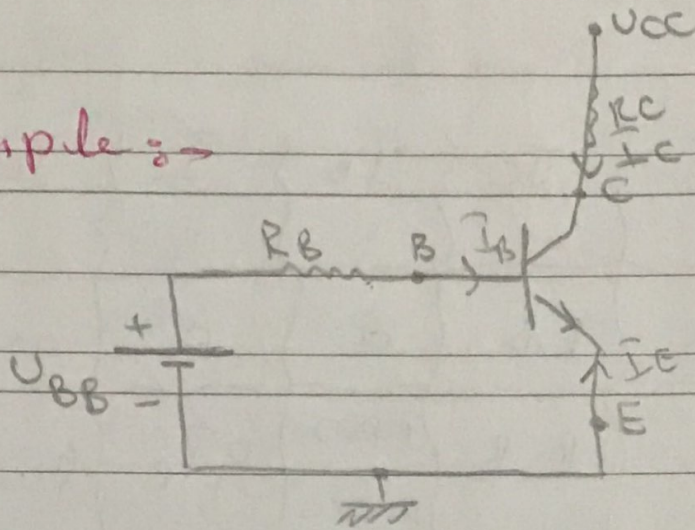 VCC
RC
IC
C
mple :-
RB B IB
+
VBB -
IE
E